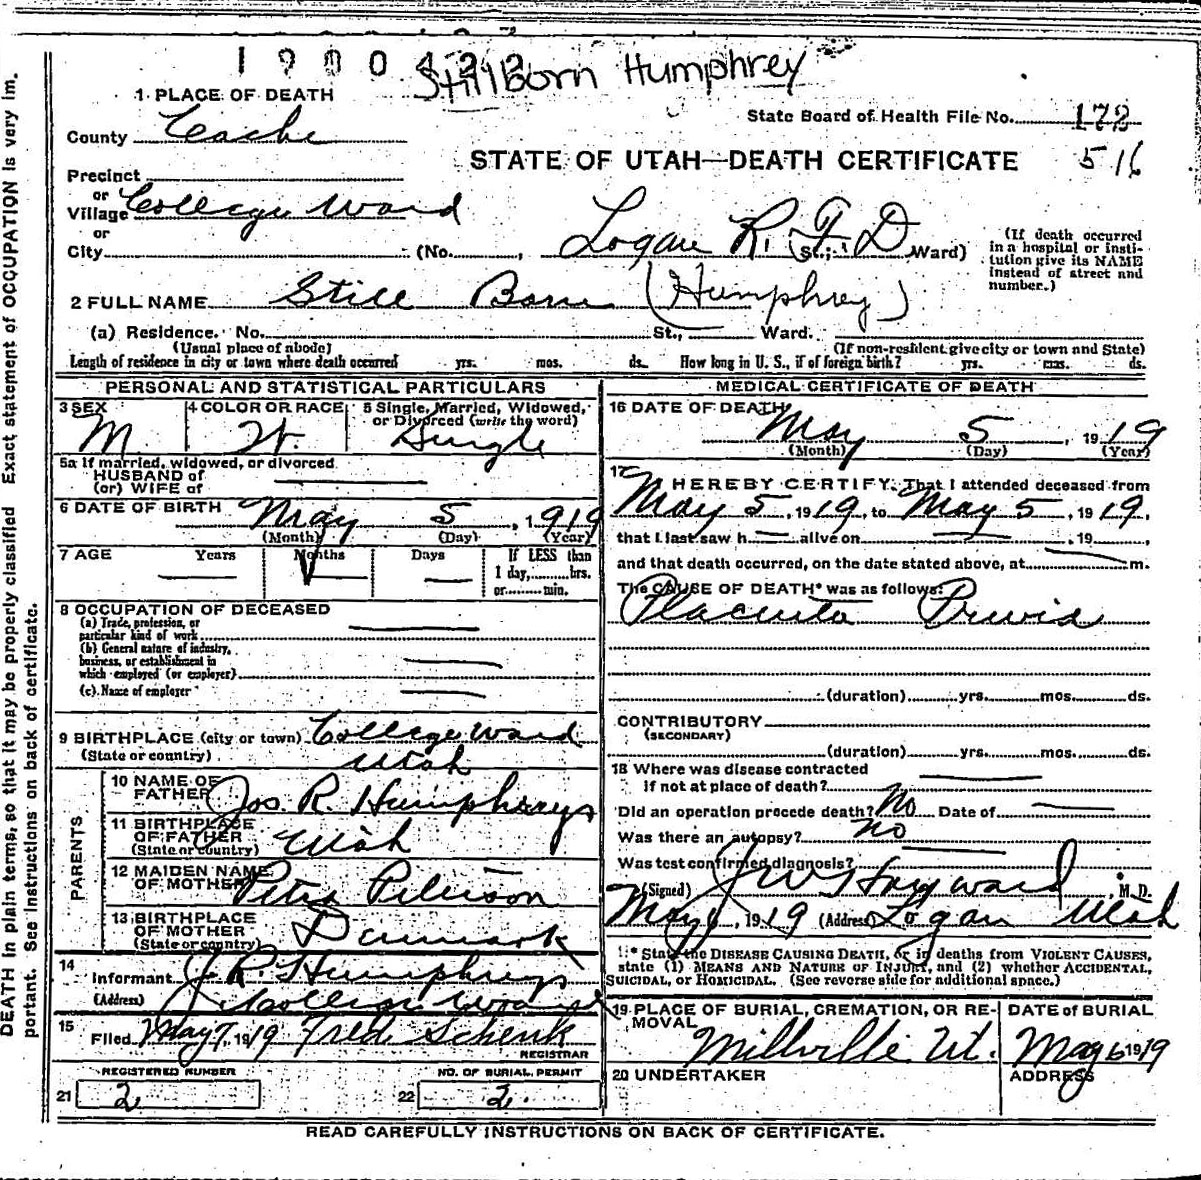 1900422
Stillborn Humphrey
1 PLACE OF DEATH
State Board of Health File No. 172
County Cache
STATE OF UTAH—DEATH CERTIFICATE 516
Precinct
or
Village College Ward
or
City (No. , Logan R. F. D St.; Ward)
(If death occurred in a hospital or institution give its NAME instead of street and number.)
2 FULL NAME Still Born (Humphrey)
(a) Residence. No. St., Ward.
(Usual place of abode) (If non-resident give city or town and State)
Length of residence in city or town where death occurred yrs. mos. ds. How long in U. S., if of foreign birth? yrs. mos. ds.
PERSONAL AND STATISTICAL PARTICULARS
3 SEX 4 COLOR OR RACE 5 Single, Married, Widowed,
or Divorced (write the word)
M. W. Single
5a If married, widowed, or divorced
HUSBAND of
(or) WIFE of
6 DATE OF BIRTH May 5, 1919
(Month) (Day) (Year)
7 AGE Years Months Days If LESS than
1 day, hrs.
or min.
8 OCCUPATION OF DECEASED
(a) Trade, profession, or
particular kind of work
(b) General nature of industry,
business, or establishment in
which employed (or employer)
(c) Name of employer
9 BIRTHPLACE (city or town) College Ward
(State or country) Utah
PARENTS
10 NAME OF
FATHER Jos. R. Humphreys
11 BIRTHPLACE
OF FATHER Utah
(State or country)
12 MAIDEN NAME
OF MOTHER Petra Peterson
13 BIRTHPLACE
OF MOTHER Denmark
(State or country)
14
Informant J. R. Humphreys
(Address) College Ward
15
Filed May 7, 1919 Fred Schenk
REGISTRAR
REGISTERED NUMBER NO. OF BURIAL PERMIT
21 2 22 2.
MEDICAL CERTIFICATE OF DEATH
16 DATE OF DEATH
May 5, 1919
(Month) (Day) (Year)
17
I HEREBY CERTIFY, That I attended deceased from
May 5, 1919, to May 5, 1919,
that I last saw h alive on , 19 ,
and that death occurred, on the date stated above, at m.
The CAUSE OF DEATH* was as follows:
Placenta Previa
(duration) yrs. mos. ds.
CONTRIBUTORY
(SECONDARY)
(duration) yrs. mos. ds.
18 Where was disease contracted
if not at place of death?
Did an operation precede death? No Date of
Was there an autopsy? No
Was test confirmed diagnosis?
(Signed) J W Hayward, M. D.
May 6, 1919 (Address) Logan Utah
* State the DISEASE CAUSING DEATH, or in deaths from VIOLENT CAUSES,
state (1) MEANS AND NATURE OF INJURY, and (2) whether ACCIDENTAL,
SUICIDAL, or HOMICIDAL. (See reverse side for additional space.)
19 PLACE OF BURIAL, CREMATION, OR RE-
MOVAL
Millville Ut.
DATE of BURIAL
May 6 1919
20 UNDERTAKER ADDRESS
READ CAREFULLY INSTRUCTIONS ON BACK OF CERTIFICATE.
DEATH in plain terms, so that it may be properly classified Exact statement of OCCUPATION is very im-
portant. See instructions on back of certificate.